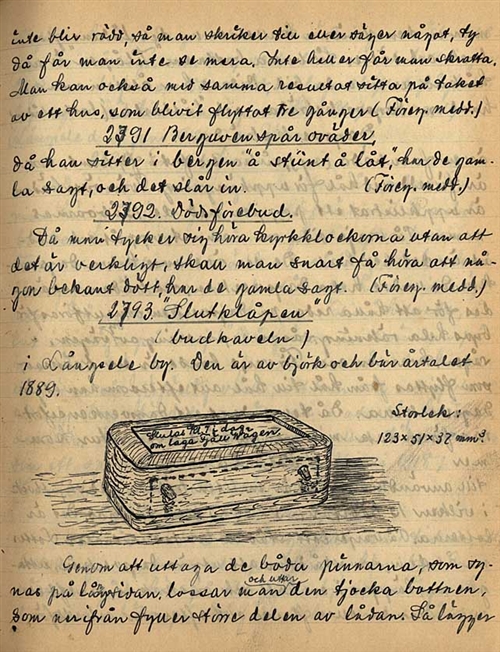 inte blir rädd, så man skriker till eller säger något, ty
då får man inte se mera. Inte heller får man skratta.
Man kan också med samma resultat sitta på taket
av ett hus, som blivit flyttat tre gånger (Föreg. medd.)
2791 Berguven spår oväder,
då han sitter i bergen "å stünt å låt", har de gam-
la sagt, och det slår in. (Föreg. medd.)
2792. Dödsförebud.
Då man tycker sig höra kyrkklockorna utan att
det är verkligt, skall man snart få höra att nå-
gon bekant dött, har de gamla sagt. (Föreg. medd.)
2793. "Slutklåpen"
(budkaveln)
i Långsele by. Den är av björk och bär årtalet
1889.
Storlek:
123×51×37 mm³
om laga Fjällvägen.
Genom att uttaga de båda pinnarna, som sy-
nas på långsidan, lossar man och uttar den tjocka bottnen,
som nerifrån fyller större delen av lådan. Så lägger